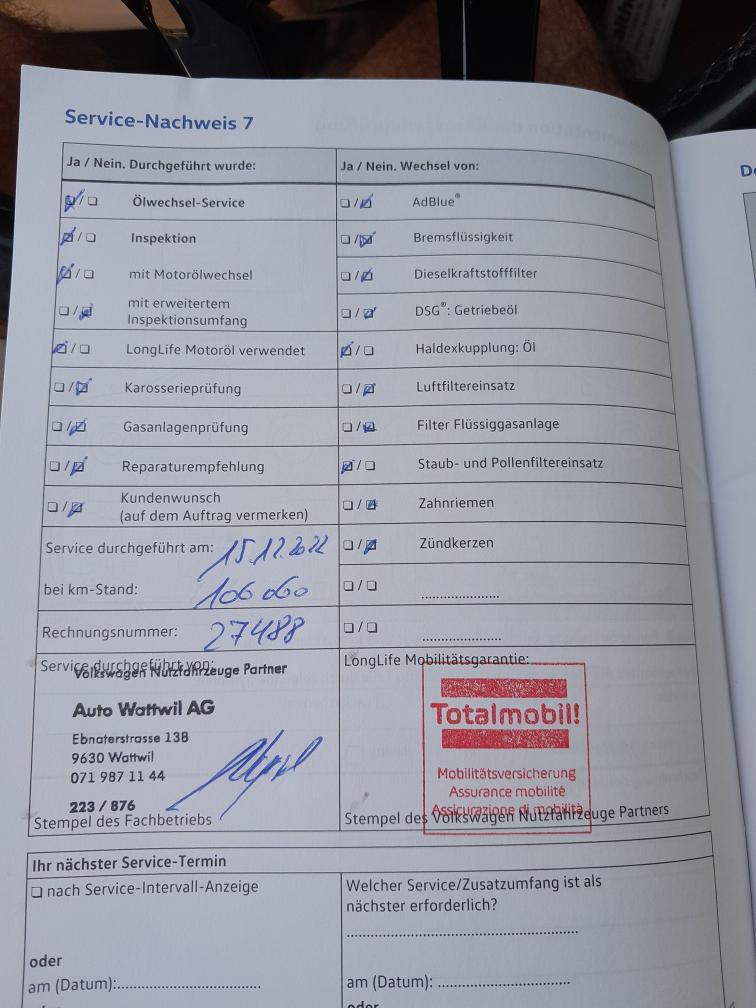 Service-Nachweis 7
Ja / Nein. Durchgeführt wurde:
Ja / Nein. Wechsel von:
☑/☐ Ölwechsel-Service
☐/☑ AdBlue®
☑/☐ Inspektion
☐/☑ Bremsflüssigkeit
☑/☐ mit Motorölwechsel
☐/☑ Dieselkraftstofffilter
☐/☑ mit erweitertem
Inspektionsumfang
☐/☑ DSG®: Getriebeöl
☑/☐ LongLife Motoröl verwendet
☑/☐ Haldexkupplung: Öl
☐/☑ Karosserieprüfung
☐/☑ Luftfiltereinsatz
☐/☑ Gasanlagenprüfung
☐/☑ Filter Flüssiggasanlage
☐/☑ Reparaturempfehlung
☑/☐ Staub- und Pollenfiltereinsatz
☐/☑ Kundenwunsch
(auf dem Auftrag vermerken)
☐/☑ Zahnriemen
Service durchgeführt am: 15.12.2022
☐/☑ Zündkerzen
bei km-Stand: 106 060
☐/☐ ....................
Rechnungsnummer: 27488
☐/☐ ....................
Service durchgeführt von:
Volkswagen Nutzfahrzeuge Partner
Auto Wattwil AG
Ebnaterstrasse 138
9630 Wattwil
071 987 11 44
223 / 876
Stempel des Fachbetriebs
LongLife Mobilitätsgarantie:
Totalmobil!
Mobilitätsversicherung
Assurance mobilité
Assicurazione di mobilità
Stempel des Volkswagen Nutzfahrzeuge Partners
Ihr nächster Service-Termin
☐ nach Service-Intervall-Anzeige
Welcher Service/Zusatzumfang ist als
nächster erforderlich?
oder
am (Datum):
am (Datum):
oder